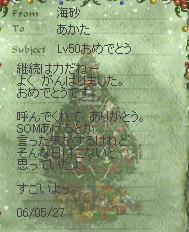 From 海砂
To あかた
Subject Lv50おめでとう
継続は力だねー
よくがんばりました。
おめでとうです。
呼んでくれて ありがとう。
SOMあげるとか
言った気がするけれど
そんな日はこないと
思っていたよ。
すごいよっ。
06/05/27